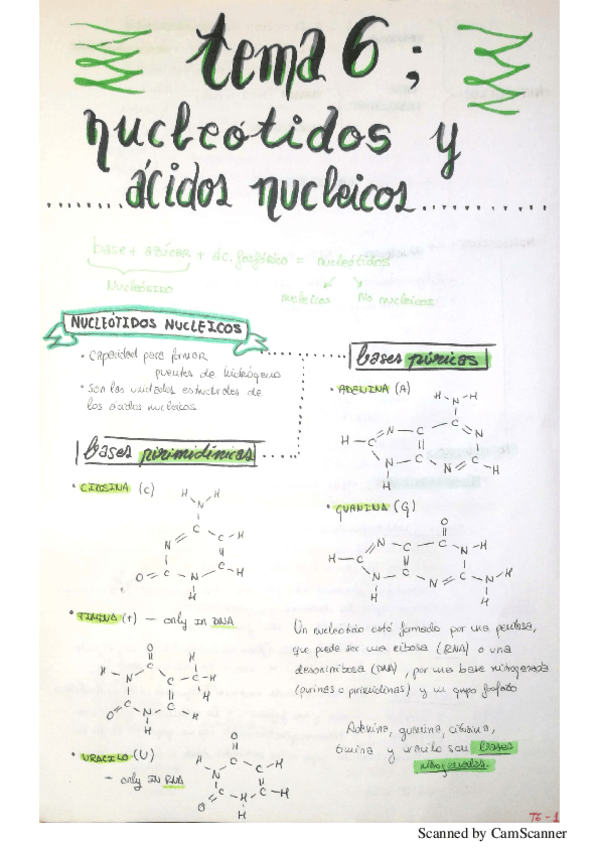 tema 6;
nucleótidos y
ácidos nucleicos
base + azúcar + ác. fosfórico = nucleótidos
Nucleósido
nucleicos No nucleicos
NUCLEÓTIDOS NUCLEICOS
• Capacidad para formar
puentes de hidrógeno
• Son las unidades estructurales de
los ácidos nucleicos
bases pirimidínicas
• CITOSINA (C)
• TIMINA (T) — only IN DNA
• URACILO (U)
– only IN RNA
bases púricas
• ADENINA (A)
• GUANINA (G)
Un nucleótido está formado por una pentosa,
que puede ser una ribosa (RNA) o una
desoxirribosa (DNA), por una base nitrogenada
(purinas o pirimidinas) y un grupo fosfato
Adenina, guanina, citosina,
timina y uracilo son bases
nitrogenadas.
T6 - 1
Scanned by CamScanner